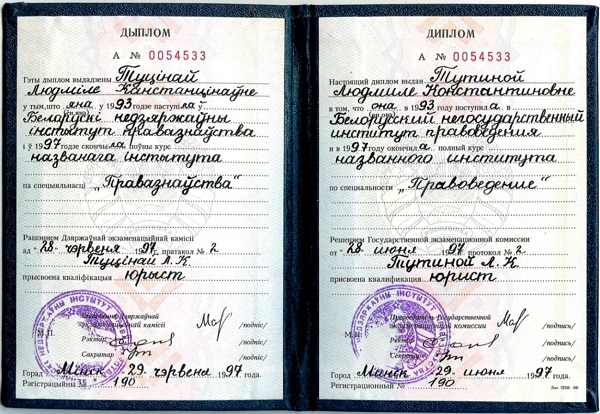 ДЫПЛОМ
А № 0054533
Гэты дыплом выдадзены Туцінай
Людміле Канстанцінаўне
у тым, што яна у 1993 годзе паступіла ў
Беларускі недзяржаўны
інстытут правазнаўства
і ў 1997 годзе скончыла поўны курс
названага інстытута
па спецыяльнасці „Правазнаўства“
Рашэннем Дзяржаўнай экзаменацыйнай камісіі
ад " 28 " чэрвеня 1997 г. пратакол № 2
Туцінай Л.К.
прысвоена кваліфікацыя юрыст
Старшыня Дзяржаўнай
экзаменацыйнай камісіі /подпіс/
М.П.
Рэктар /подпіс/
Сакратар /подпіс/
Горад Мінск 29 чэрвеня 1997 года.
Рэгістрацыйны № 190
ДИПЛОМ
А № 0054533
Настоящий диплом выдан Тутиной
Людмиле Константиновне
в том, что она в 1993 году поступила в
Белорусский негосударственный
институт правоведения
и в 1997 году окончила полный курс
названного института
по специальности „Правоведение“
Решением Государственной экзаменационной комиссии
от " 28 " июня 1997 г. протокол № 2
Тутиной Л.К.
присвоена квалификация юрист
Председатель Государственной
экзаменационной комиссии /подпись/
М.П.
Ректор /подпись/
Секретарь /подпись/
Город Минск 29 июня 1997 года.
Регистрационный № 190
Зак. 1258-96